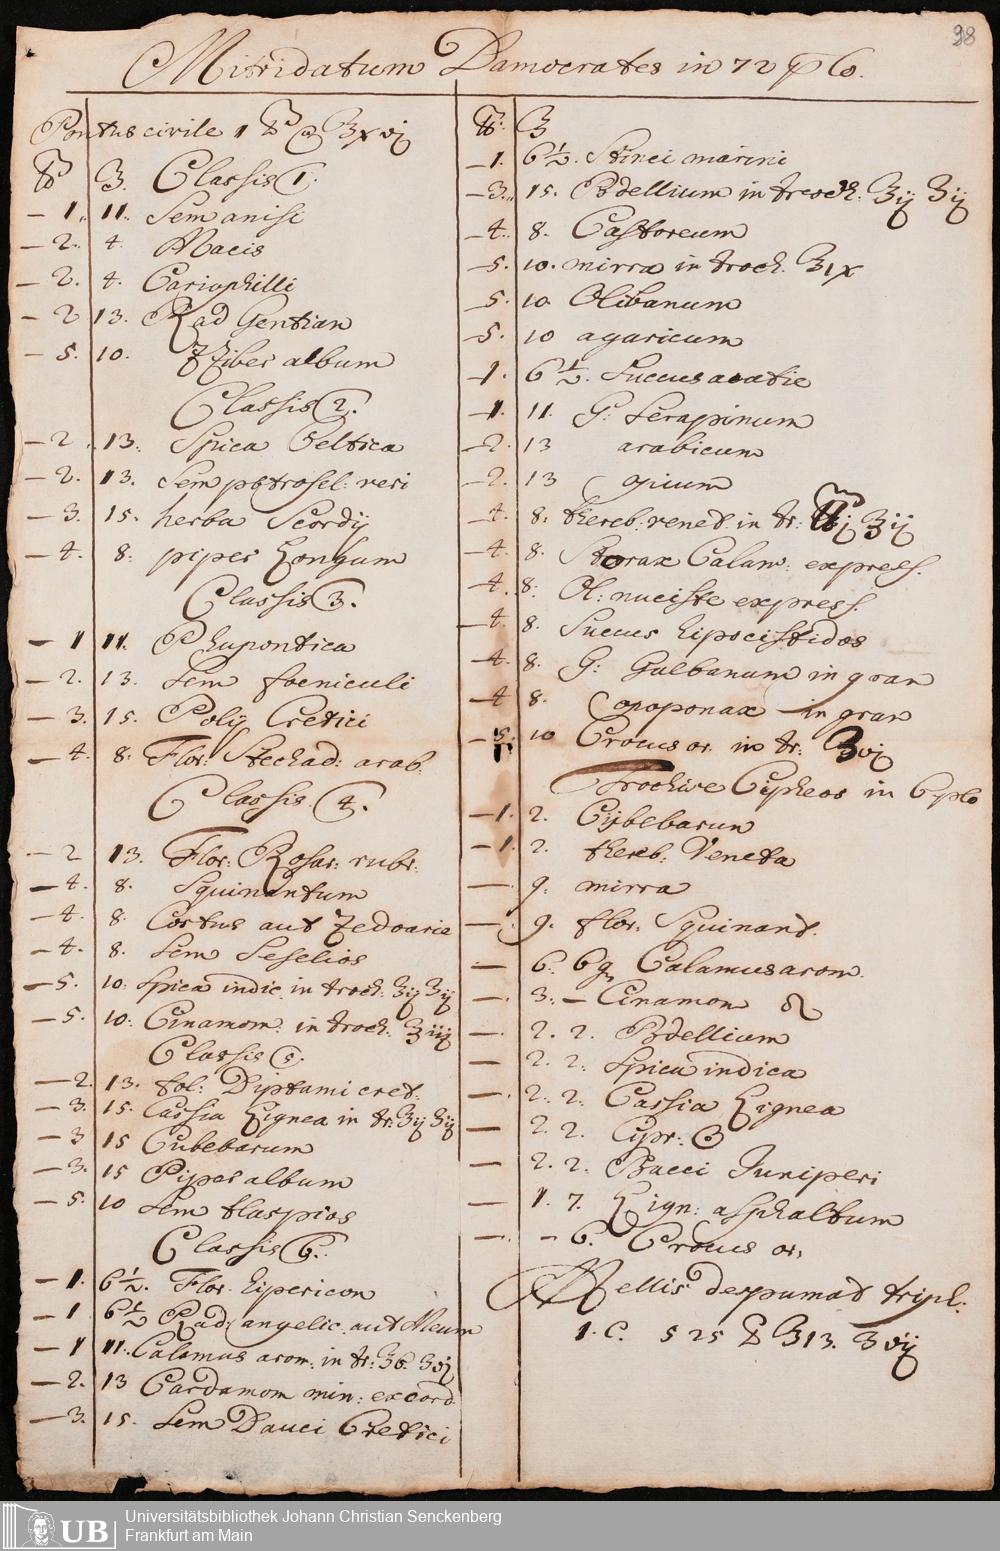 98
Mitridatum Damocrates in 72 plo.
Pontus civile 1 ℔ @ ℥xvj
℔ ℥. Classis 1.
– 1. 11. Sem anisi
– 2. 4. Macis
– 2. 4. Cariophilli
– 2 13. Rad Gentian
– 5. 10. Zziber album
Classis 2.
– 2. 13. Spica Celtica
– 2. 13. Sem petrosel: veri
– 3. 15. herba Scordij
– 4. 8. piper Longum
Classis 3.
– 1 11. Phupontica
– 2. 13. Sem foeniculi
– 3. 15. Polij Cretici
– 4. 8. Flor: Stechad: arab.
Classis 4.
– 2 13. Flor: Rosar: rubr.
– 4. 8. Squinantum
– 4. 8 Costus aut Zedoarie
– 4. 8. Sem Seselios
– 5. 10. Spica indic. in troch: ℥ij ʒij
– 5. 10: Cinamom: in troch: ℥iij
Classis 5.
– 2. 13. fol: Diptami cret.
– 3. 15. Cassia Lignea in tr: ℥ij ʒij
– 3 15 Cubebarum
– 3. 15 Piper album
– 5. 10 Sem tlaspios
Classis 6.
– 1. 6½. Flor. hipericon
– 1 6½ Rad: angelic. aut Meum
– 1 11. Calamus arom: in tr: ℥6. ʒvj
– 2. 13 Cardamom min: excord
– 3. 15. Sem Dauci Cretici
℔: ℥
– 1. 6½. Stinci marini
– 3. 15. Bdellium in troch: ℥ij ʒij
– 4. 8. Castoreum
– 5. 10. mirra in troch. ℥ix
– 5. 10 Olibanum
– 5. 10 agaricum
– 1. 6½. Succus acatie
– 1. 11. G: Serapinum
– 2. 13 arabicum
– 2. 13 opium
– 4. 8. thereb: venet in tr: ℔j ℥ij
– 4. 8. Storax Calam: express.
– 4. 8. Ol: nuciste express.
– 4. 8. Succus hipocistidos
– 4. 8. G: Galbanum in gran
– 4 8. Opoponax in gran
– 5. 10 Crocus or. in tr: ℥vj
Trochisc Cipheos in 6plo
– 1. 2. Cijbebarun
– 1. 2. thereb: Veneta
– 9. mirra
– 9. flor. Squinant.
– 6. 6 Calamus arom.
– 3. – Cinamon
– 2. 2. Bdellium
– 2. 2. Spica indica
– 2. 2. Cassia Lignea
– 2. 2. Cypr:
– 2. 2. Bacci Juniperi
– 1. 7. Lign: asphaltum
– – 6. Crocus or,
Mellis despumat tripl:
1. C. 525 ℔ ℥13. ʒvij
UB
Universitätsbibliothek Johann Christian Senckenberg
Frankfurt am Main